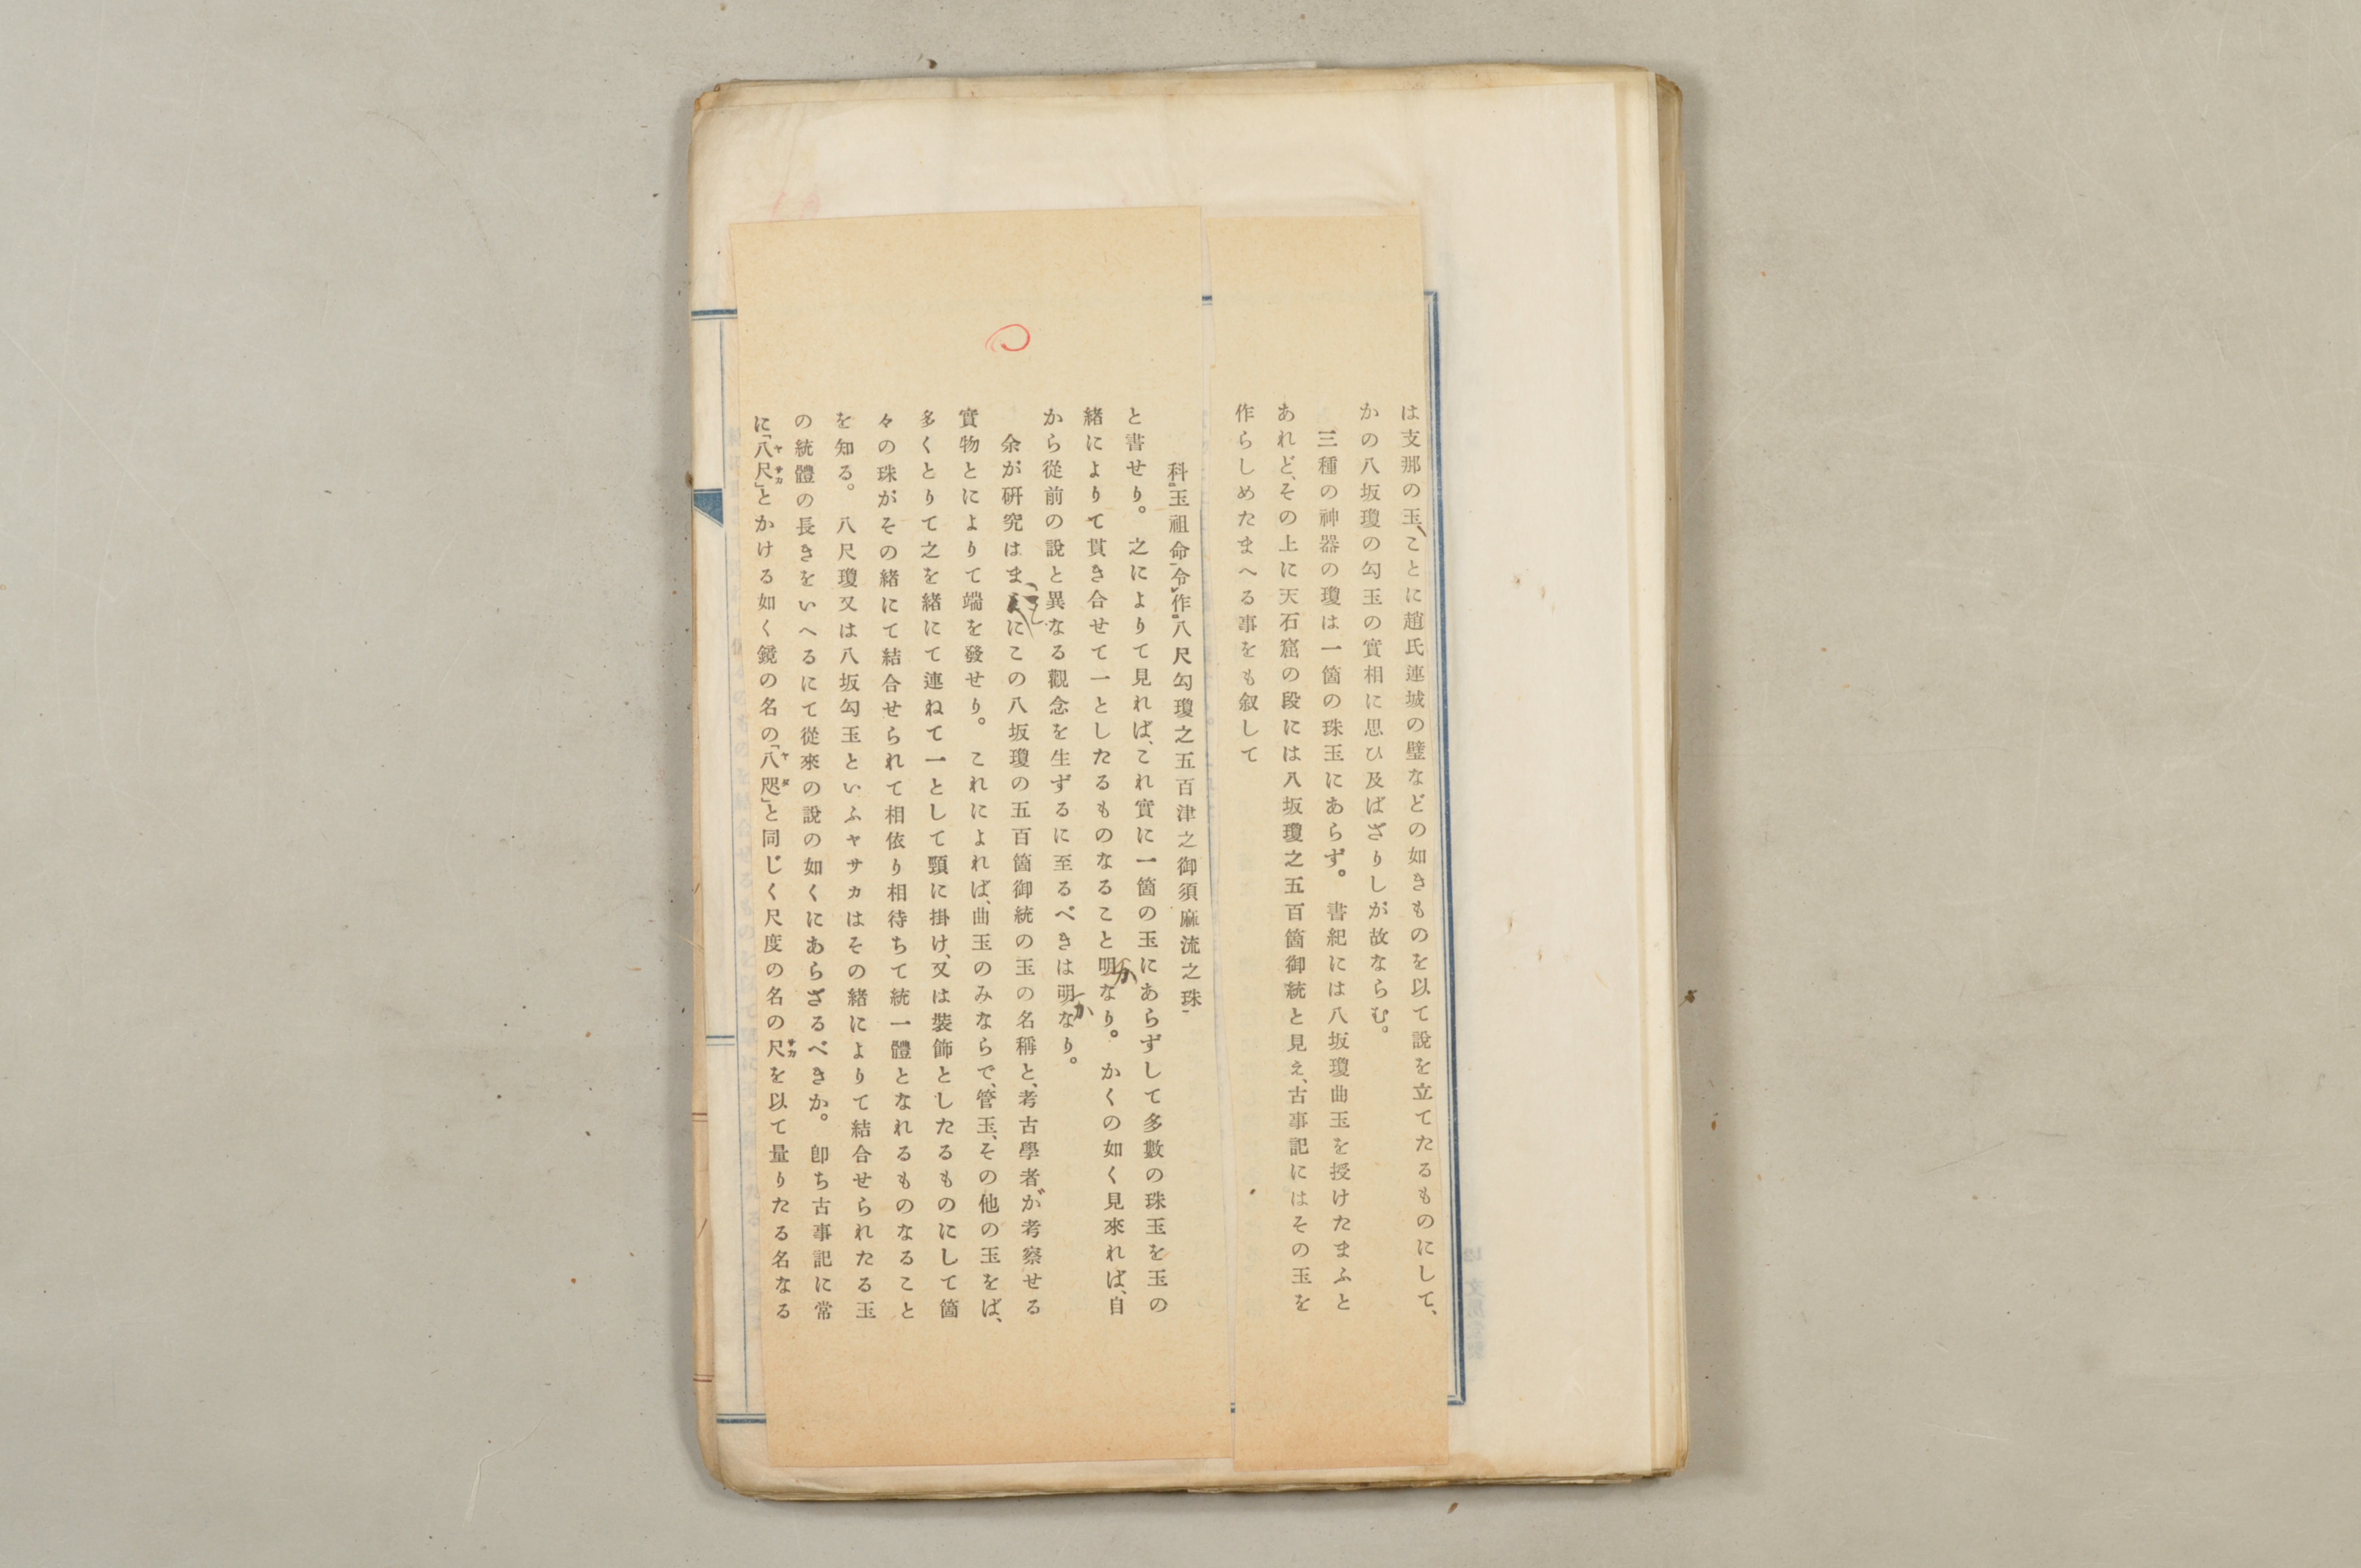 は支那の玉、ことに趙氏連城の璧などの如きものを以て說を立てたるものにして、
かの八坂瓊の勾玉の實相に思ひ及ばざりしが故ならむ。
三種の神器の瓊は一箇の珠玉にあらず。書紀には八坂瓊曲玉を授けたまふと
あれど、その上に天石窟の段には八坂瓊之五百箇御統と見え、古事記にはその玉を
作らしめたまへる事をも叙して
科玉祖命令作八尺勾瓊之五百津之御須麻流之珠
と書せり。之によりて見れば、これ實に一箇の玉にあらずして多數の珠玉を玉の
緒によりて貫き合せて一としたるものなること明かなり。かくの如く見來れば、自
から從前の說と異なる觀念を生ずるに至るべきは明かなり。
余が硏究はまにこの八坂瓊の五百箇御統の玉の名稱と、考古學者が考察せる
實物とによりて端を發せり。これによれば、曲玉のみならで、管玉、その他の玉をば、
多くとりて之を緒にて連ねて一として頸に掛け、又は裝飾としたるものにして箇
々の珠がその緒にて結合せられて相依り相待ちて統一體となれるものなること
を知る。八尺瓊又は八坂勾玉といふヤサカはその緒によりて結合せられたる玉
の統體の長きをいへるにて從來の說の如くにあらざるべきか。卽ち古事記に常
に「八尺」とかける如く鏡の名の「八咫」と同じく尺度の名の尺を以て量りたる名なる